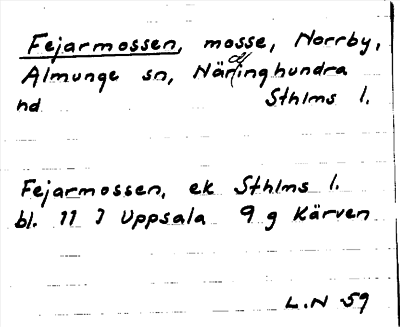 Fejarmossen, mosse, Norrby,
Almunge sn, Närdinghundra
hd Sthlms l.
Fejarmossen, ek Sthlms l.
bl. 11 I Uppsala 9 g Kärven
L.N 59